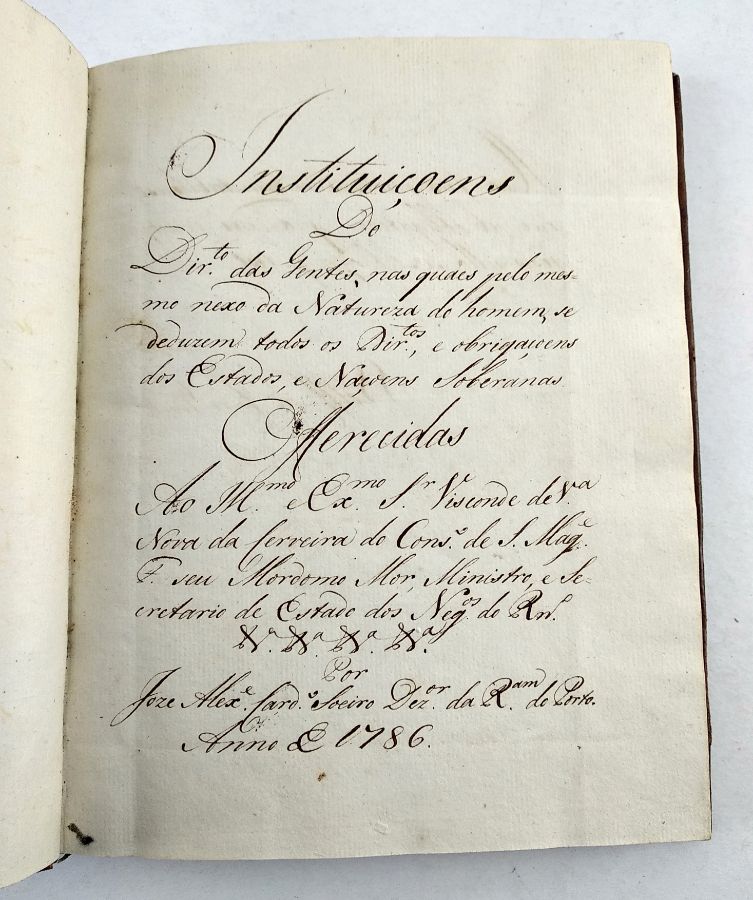 Instituiçoens
Do
Dir.to das Gentes, nas quaes pelo mes-
mo nexo da Natureza do homem, se
deduzem todos os Dir.tos, e obrigaçoens
dos Estados, e Naçoens Soberanas.
Offerecidas
Ao Il.mo Ex.mo S.r Visconde de V.a
Nova da Cerveira do Cons.o de S. Mag.e
F. seu Mordomo Mor, Ministro, e Se-
cretario de Estado dos Neg.os do Rn.o
Por
Joze Alex.e Card.o Soeiro Dez.or da R.am do Porto.
Anno de 1786.